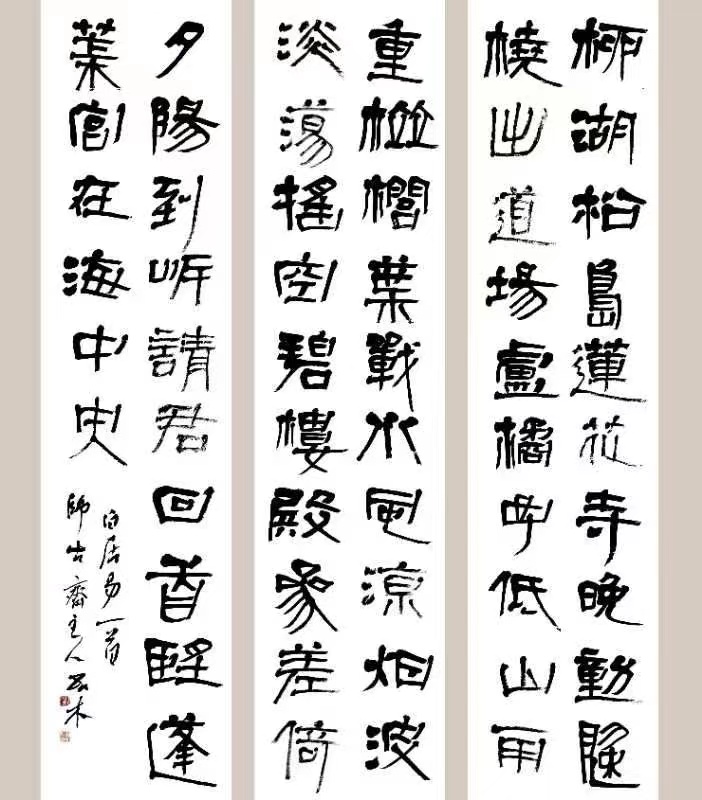 柳湖松島蓮花寺晚動歸
橈出道場盧橘子低山雨
重栟櫚葉戰水風涼烟波
淡蕩搖空碧樓殿參差倚
夕陽到岸請君回首望蓬
萊宮在海中央
白居易一首
師古齋主人